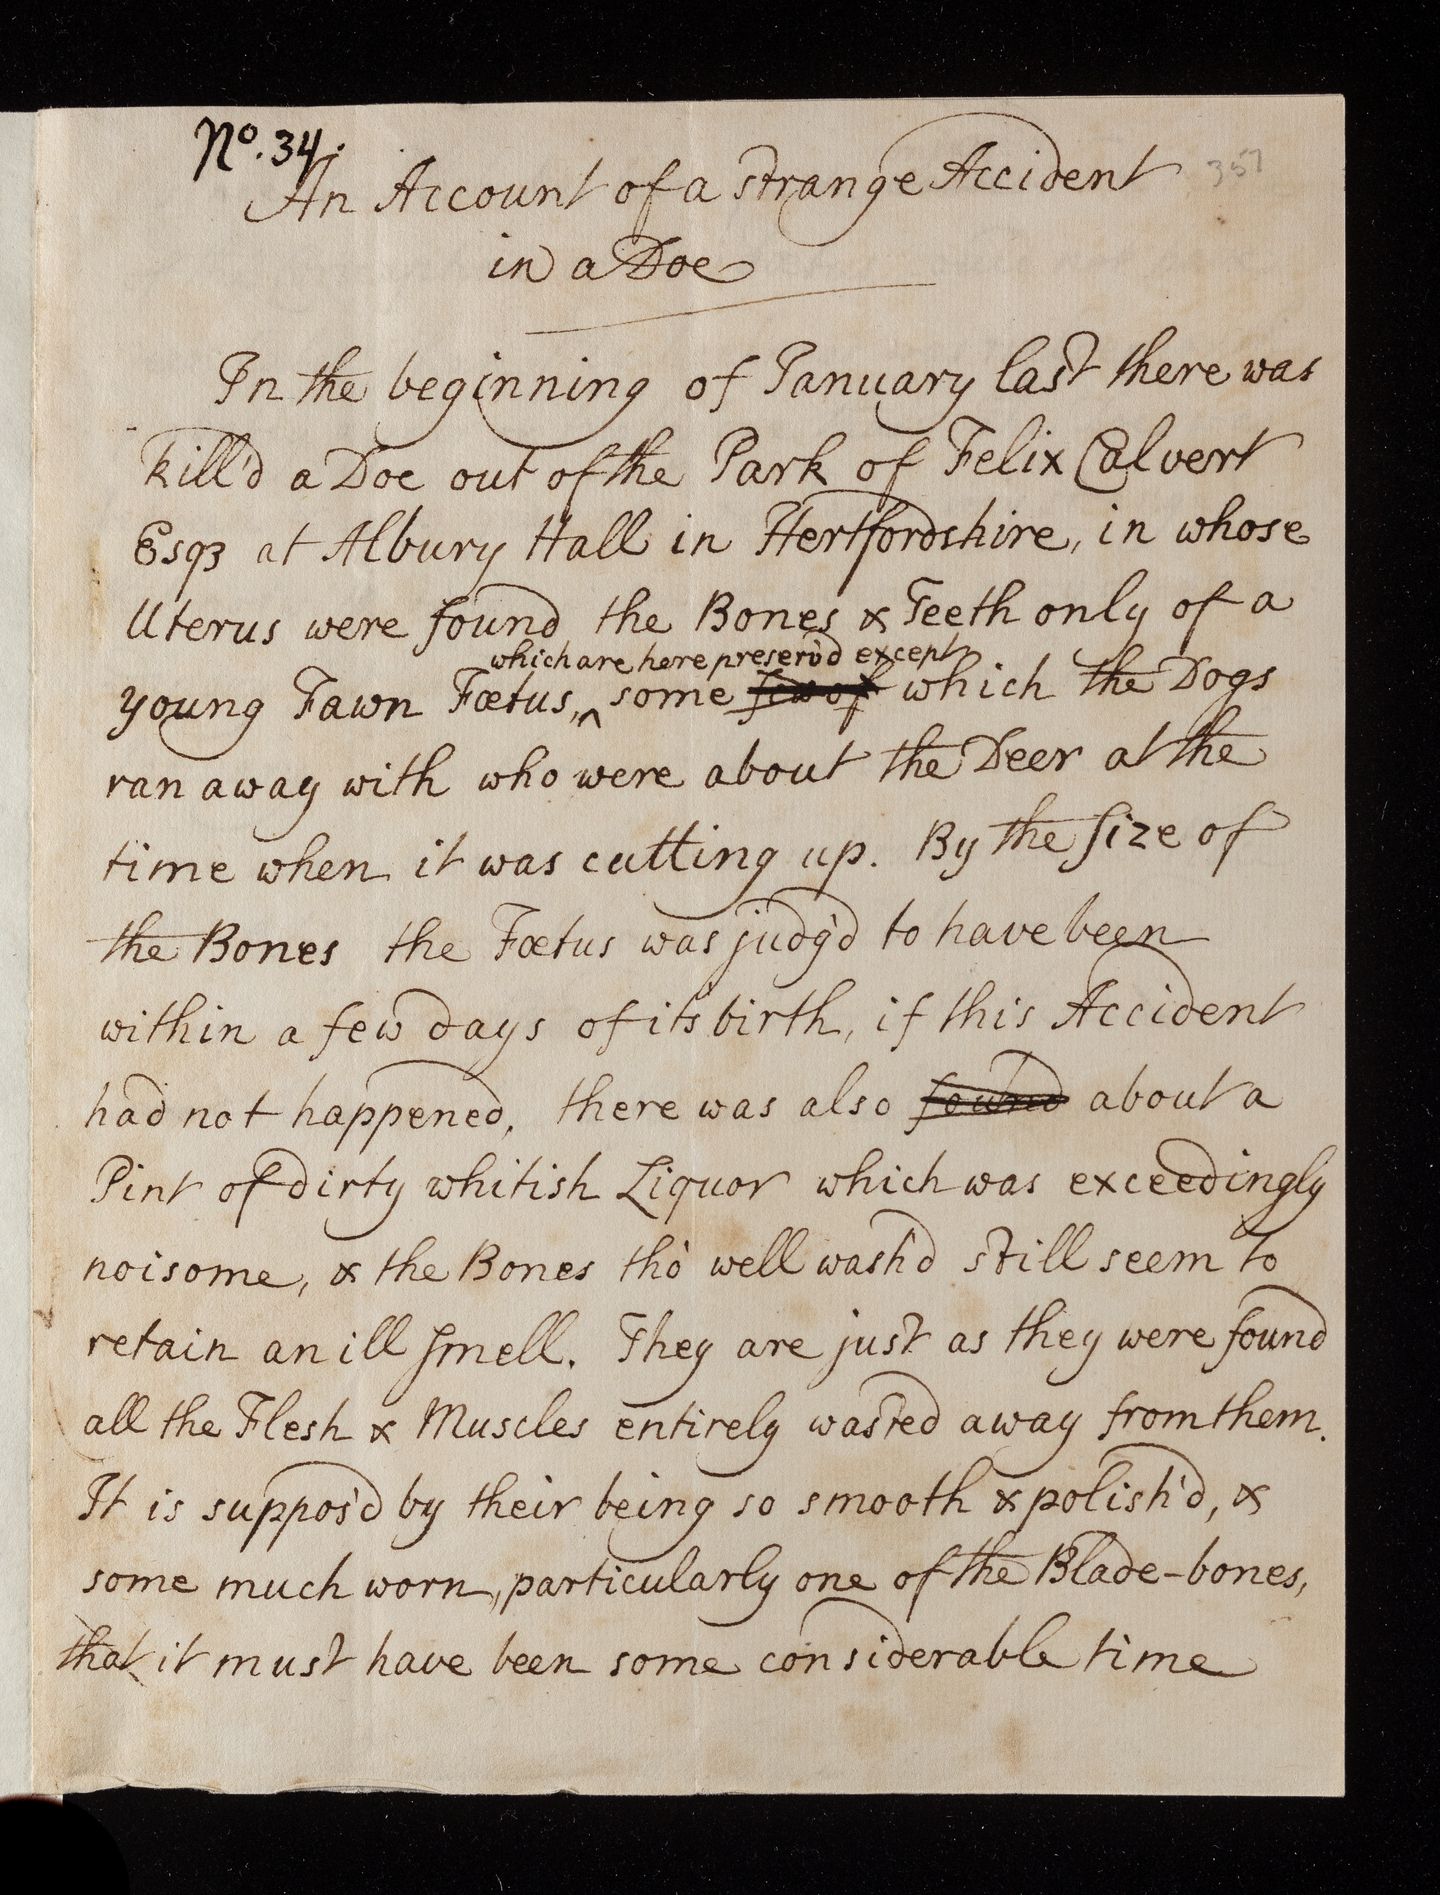 No. 34.
357
An Account of a strange Accident
in a Doe
In the beginning of January last there was
kill'd a Doe out of the Park of Felix Calvert
Esqr at Albury Hall in Hertfordshire, in whose
Uterus were found the Bones & Teeth only of a
which are here preserv'd except
young Fawn Fœtus, ^ some few of which the Dogs
ran away with who were about the Deer at the
time when it was cutting up. By the size of
the Bones the Fœtus was judg'd to have been
within a few days of its birth, if this Accident
had not happened, there was also found about a
Pint of dirty whitish Liquor which was exceedingly
noisome, & the Bones tho' well wash'd still seem to
retain an ill smell. They are just as they were found
all the Flesh & Muscles entirely wasted away from them.
It is suppos'd by their being so smooth & polish'd, &
some much worn, particularly one of the Blade-bones,
that it must have been some considerable time